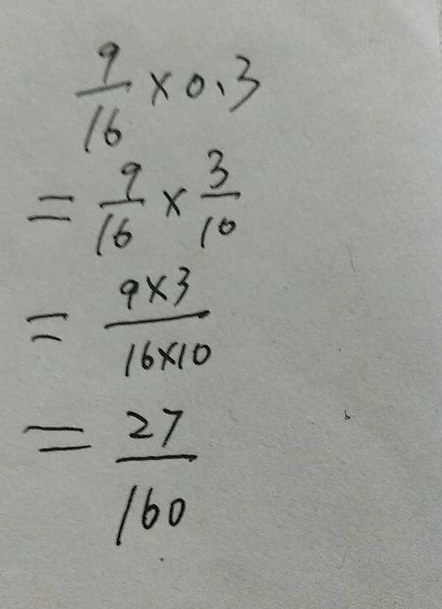 9/16 × 0.3
= 9/16 × 3/10
= 9×3/16×10
= 27/160